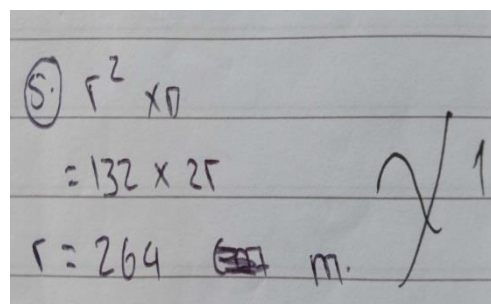 5. r² × π
= 132 × 2r 1
r = 264 m.